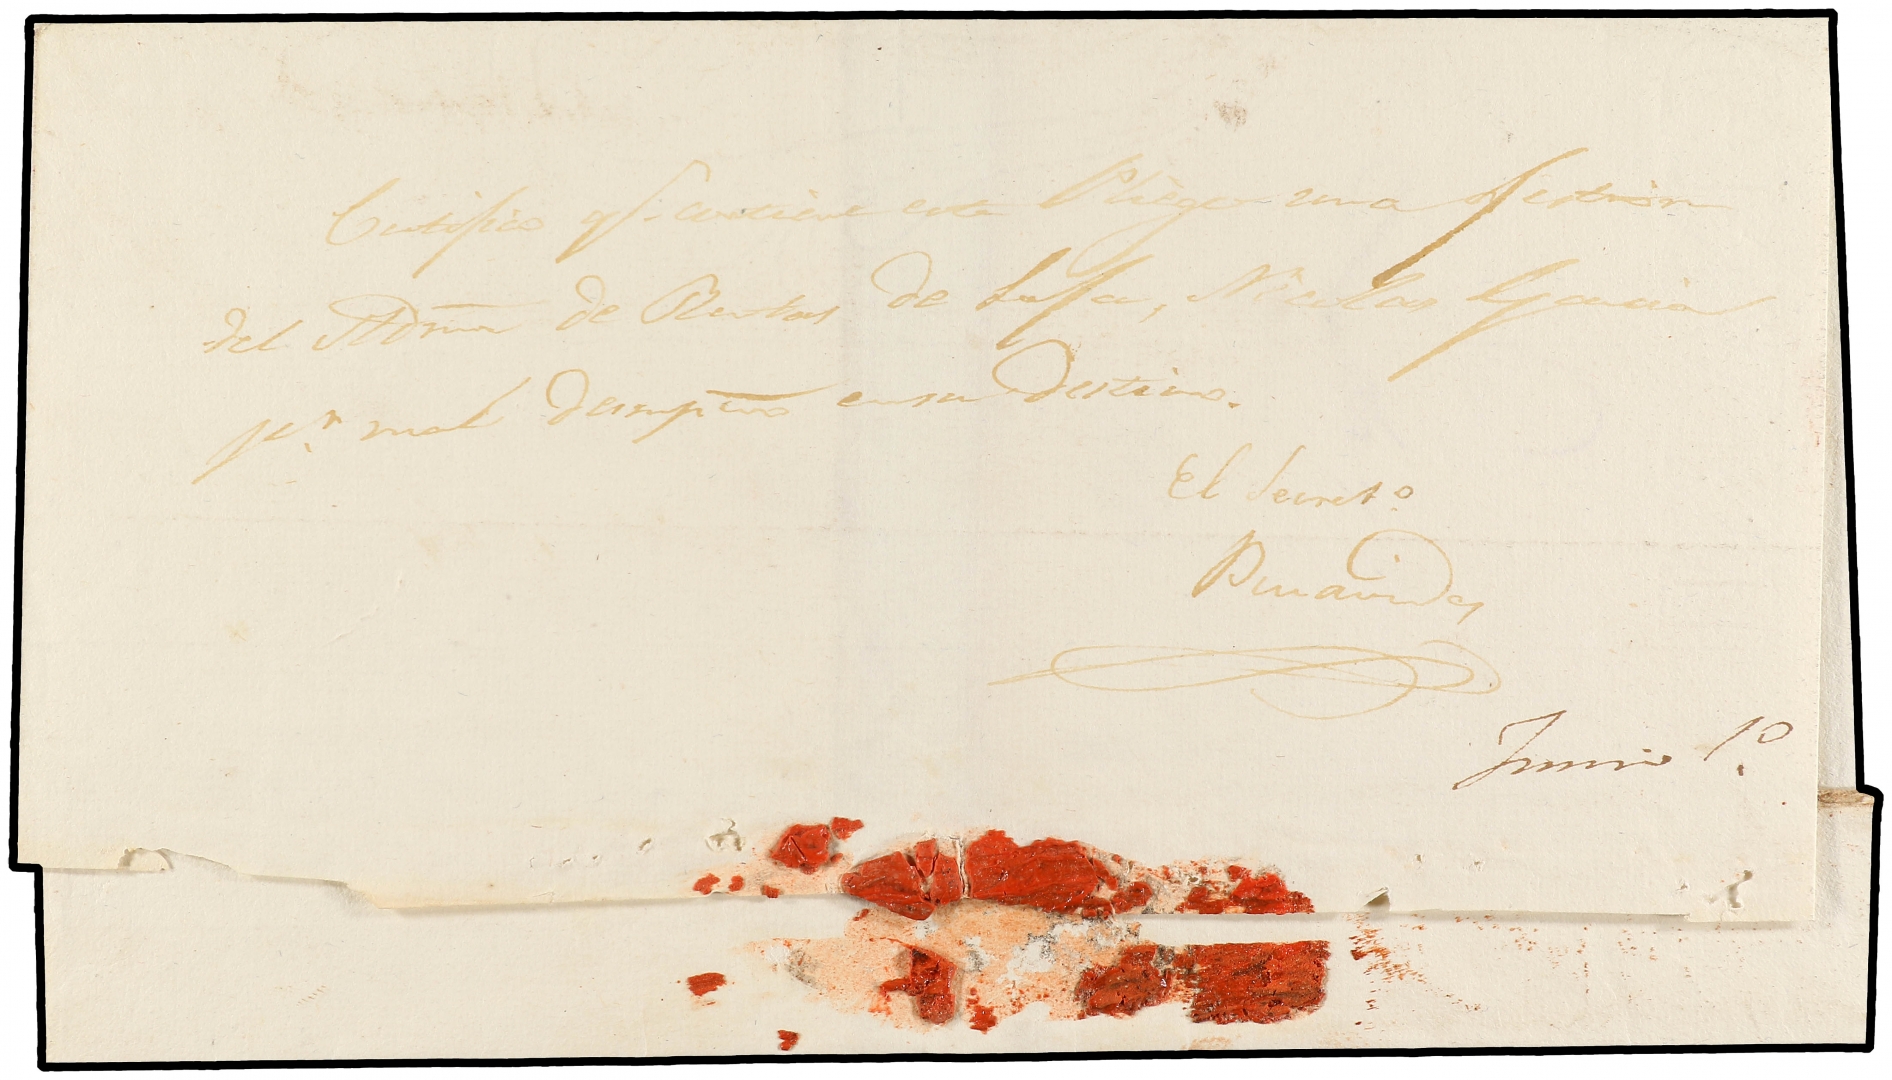 Certifico qe. contiene este Pliego una
del Admor de Rentas de , Nicolas Garcia
pr. mal desempeño en su destino.
El Secreto.
Benavides
Junio 1o.